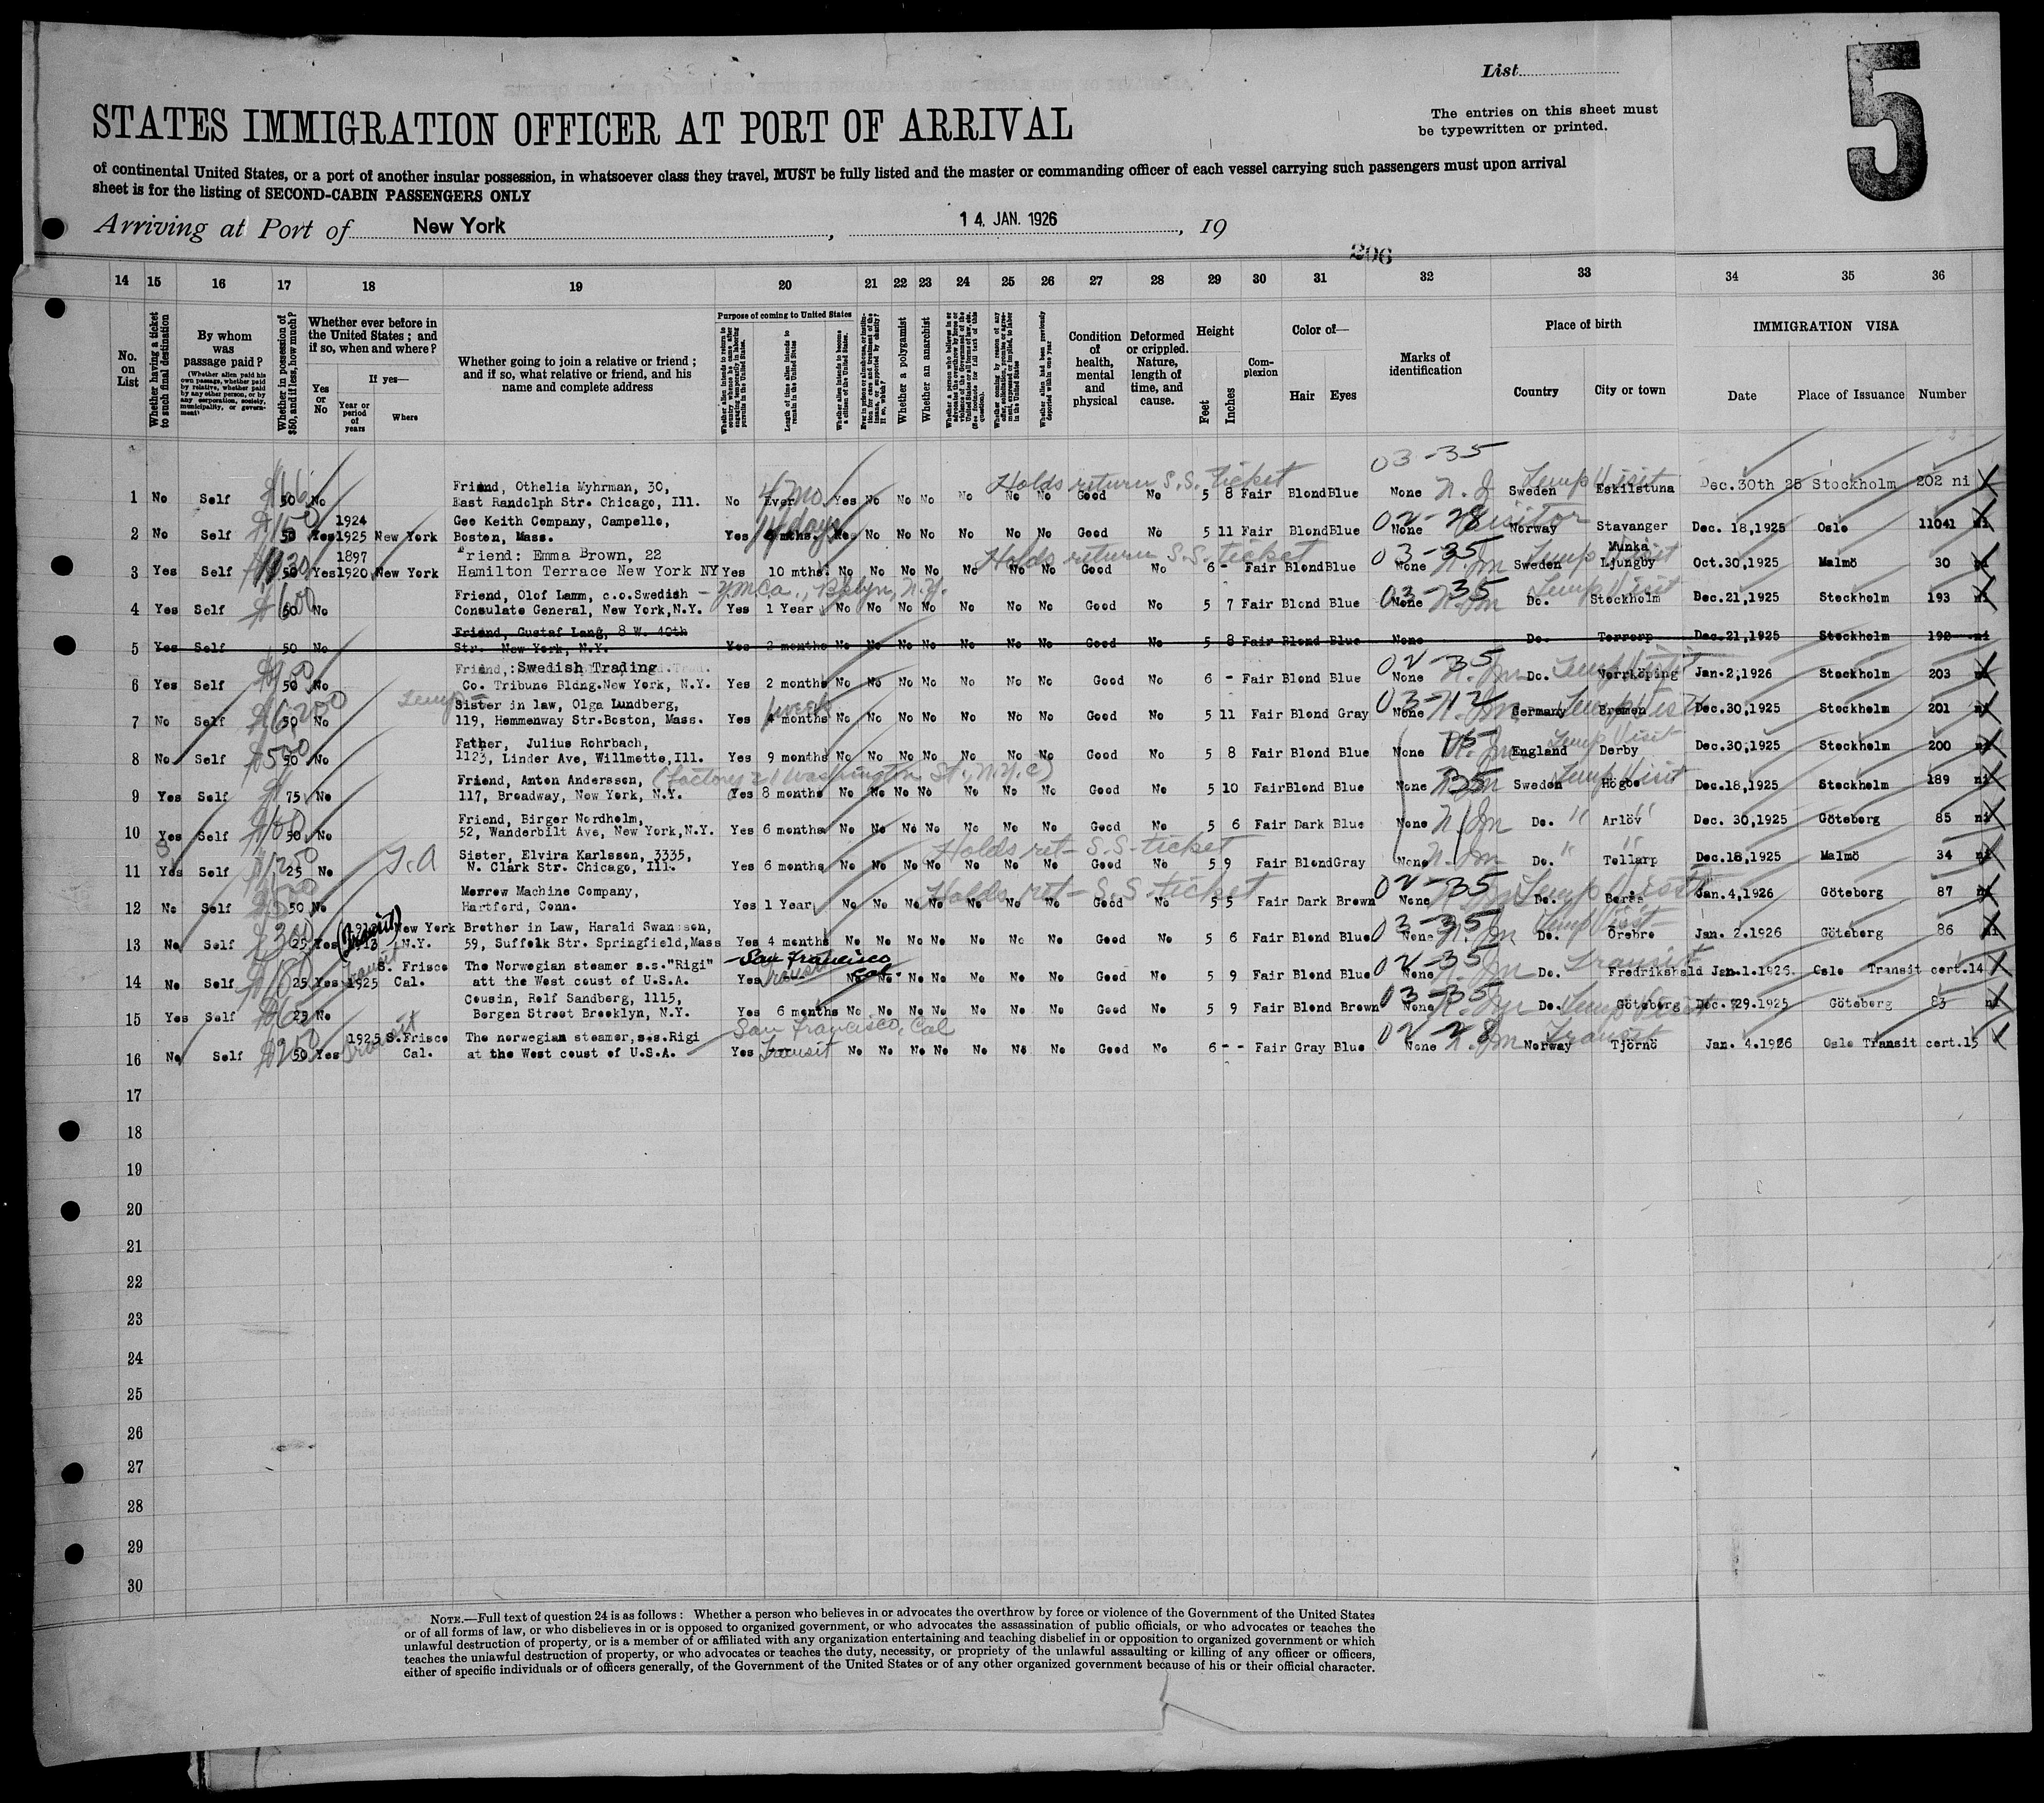 List
5
The entries on this sheet must
be typewritten or printed.
STATES IMMIGRATION OFFICER AT PORT OF ARRIVAL
of continental United States, or a port of another insular possession, in whatsoever class they travel, MUST be fully listed and the master or commanding officer of each vessel carrying such passengers must upon arrival
sheet is for the listing of SECOND-CABIN PASSENGERS ONLY
Arriving at Port of New York, 14. JAN. 1926, 19
206
14 15 16 17 18 19 20 21 22 23 24 25 26 27 28 29 30 31 32 33 34 35 36
No. on List
Whether having a ticket to such final destination
By whom was passage paid?
(Whether alien paid his own passage, whether paid by relative, whether paid by any other person, or by any corporation, society, municipality, or government)
Whether in possession of $50, and if less, how much?
Whether ever before in the United States; and if so, when and where?
Yes or No
If yes—
Year or period of years
Where
Whether going to join a relative or friend; and if so, what relative or friend, and his name and complete address
Purpose of coming to United States
Length of time alien intends to remain in the United States
Whether alien intends to become a citizen of the United States.
Whether a polygamist
Whether an anarchist
Condition of health, mental and physical
Deformed or crippled. Nature, length of time, and cause.
Height
Feet Inches
Complexion
Color of—
Hair Eyes
Marks of identification
Place of birth
Country City or town
IMMIGRATION VISA
Date Place of Issuance Number
03-35
1 No Self 50 No Friend, Othelia Myhrman, 30, East Randolph Str. Chicago, Ill. No Ever 4 mo Yes No No No No No No Holds return S.S. ticket Good No 5 8 Fair Blond Blue None Sweden Temp Visit Eskilstuna Dec.30th 25 Stockholm 202 ni
2 No Self $150 50 Yes 1924 1925 New York Geo Keith Company, Campello, Boston, Mass. Yes 14 days mths. Yes No No No No No No Good No 5 11 Fair Blond Blue 02-28 None Visitor Norway Stavanger Dec. 18,1925 Oslo 11041 ni
3 Yes Self 50 Yes 1897 1920 New York Friend: Emma Brown, 22 Hamilton Terrace New York NY Yes 10 mths. No No No No No No No Holds return S.S. ticket Good No 6 - Fair Blond Blue 03-35 None Sweden Temp Visit Munka Ljungby Oct.30,1925 Malmö 30 ni
4 Yes Self $600 50 No Friend, Olof Lamm, c.o.Swedish Consulate General, New York,N.Y. - Y.M.C.a., Bklyn, N.Y. Yes 1 Year No No No No No No No Good No 5 7 Fair Blond Blue 03-35 None Do. Temp Visit Stockholm Dec.21,1925 Stockholm 193 ni
5 Yes Self 50 No Friend, Gustaf Lang, 8 W. 40th Str. New York, N.Y. Yes 2 months No No No No No No No Good No 5 8 Fair Blond Blue None Do. Torrorp Dec.21,1925 Stockholm 192 ni
6 Yes Self 50 No Friend,: Swedish Trading Co. Tribune Bldng.New York, N.Y. Yes 2 months No No No No No No No Good No 6 - Fair Blond Blue 02-35 None Do. Temp Visit Norrköping Jan.2,1926 Stockholm 203 ni
7 No Self 50 No Sister in law, Olga Lundberg, 119, Hemmenway Str.Boston, Mass. Yes months No No No No No No No Good No 5 11 Fair Blond Gray 03-12 None Germany Temp Visit Bremen Dec.30,1925 Stockholm 201 ni
8 No Self $500 50 No Father, Julius Rohrbach, 1123, Linder Ave, Willmette,Ill. Yes 9 months No No No No No No No Good No 5 8 Fair Blond Blue None 15 England Temp Visit Derby Dec.30,1925 Stockholm 200 ni
9 Yes Self 75 No Friend, Anton Anderssen, 117, Broadway, New York, N.Y. (factory 21 Washington St., N.Y.C) Yes 8 months No No No No No No No Good No 5 10 Fair Blond Blue None 35 Sweden Temp Visit Högbo Dec.18,1925 Stockholm 189 ni
10 Yes Self $100 50 No Friend, Birger Nordholm, 52, Wanderbilt Ave, New York,N.Y. Yes 6 months No No No No No No No Good No 5 6 Fair Dark Blue None Do. " Arlöv " Dec. 30,1925 Göteberg 85 ni
11 Yes Self 25 No Sister, Elvira Karlssen, 3335, N. Clark Str. Chicago, Ill. Yes 6 months No No No No No No No Holds ret- S.S- ticket Good No 5 9 Fair Blond Gray None Do. " Tollarp " Dec.18,1925 Malmö 34 ni
12 No Self 50 No Morrow Machine Company, Hartford, Conn. Yes 1 Year No No No No No No No Holds ret- S.S. ticket Good No 5 5 Fair Dark Brown 02-35 None Do. Temp Visit Borås Jan.4,1926 Göteberg 87 ni
13 No Self $300 25 Yes (Transit) 1913 New York N.Y. Brother in Law, Harald Swanssen, 59, Suffolk Str. Springfield,Mass Yes 4 months No No No No No No No Good No 5 6 Fair Blond Blue 03-35 None Do. Temp Visit Örebro Jan. 2.1926 Göteberg 86 ni
14 No Self 25 Yes Transit 1925 S. Frisco Cal. The Norwegian steamer s.s."Rigi" att the West coust of U.S.A. Yes Transit San Francisco Cal. No No No No No No No Good No 5 9 Fair Blond Blue 02-35 None Do. Transit Fredrikshald Jan.1.1926. Oslo Transit cert.14
15 Yes Self 25 No Cousin, Rolf Sandberg, 1115, Bergen Street Brooklyn, N.Y. Yes 6 months No No No No No No No Good No 5 9 Fair Blond Brown 03-35 None Do. Temp Visit Göteborg Dec. 29.1925 Göteberg 83 ni
16 No Self $250 50 Yes Transit 1925 S.Frisco Cal. The norwegian steamer,s.s.Rigi at the West coust of U.S.A. San Francisco, Cal Yes Transit No No No No No No No Good No 6 - - Fair Gray Blue 02-28 None Norway Transit Tjörnö Jan. 4.1926 Oslo Transit cert.15
17
18
19
20
21
22
23
24
25
26
27
28
29
30
NOTE.—Full text of question 24 is as follows: Whether a person who believes in or advocates the overthrow by force or violence of the Government of the United States
or of all forms of law, or who disbelieves in or is opposed to organized government, or who advocates the assassination of public officials, or who advocates or teaches the
unlawful destruction of property, or is a member of or affiliated with any organization entertaining and teaching disbelief in or opposition to organized government or which
teaches the unlawful destruction of property, or who advocates or teaches the duty, necessity, or propriety of the unlawful assaulting or killing of any officer or officers,
either of specific individuals or of officers generally, of the Government of the United States or of any other organized government because of his or their official character.